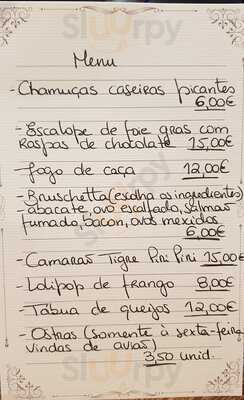 Sluurpy
Menu
- Chamuças caseiras picantes
6,00€
- Escalope de foie gras com
Raspas de chocolate 15,00€
- Fogo de caça 12,00€
- Bruschetta (escolha os ingredientes)
abacate, ovo escalfado, salmão
fumado, bacon, ovos mexidos
6,00€
- Camarão Tigre Piri Piri 15,00€
- Lolipop de frango 8,00€
- Tábua de queijos 12,00€
- Ostras (somente à sexta-feira
vindas de avião)
3,50 unid.
Sluurpy